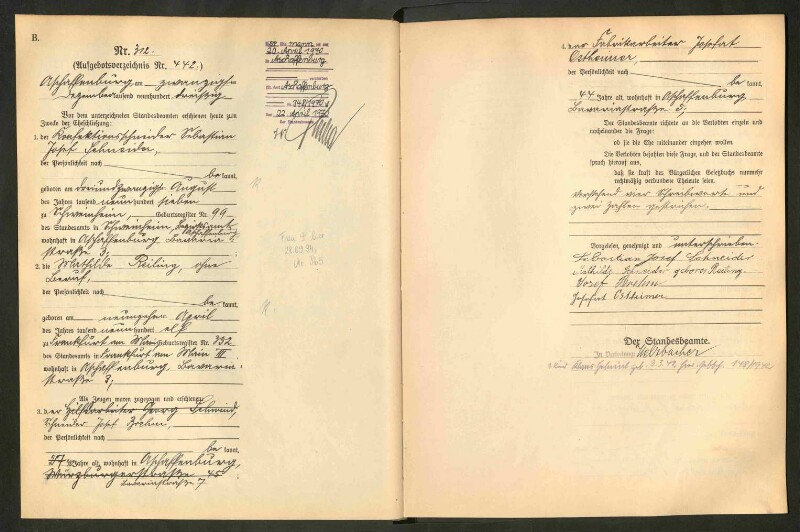 B.
Nr. 312.
(Aufgebotsverzeichnis Nr. 442.)
Aschaffenburg am zwanzigsten
Dezember tausend neunhundert dreissig
Vor dem unterzeichneten Standesbeamten erschienen heute zum
Zwecke der Eheschließung:
1. der Konfektionsschneider Sebastian
Josef Schneider,
der Persönlichkeit nach
be kannt,
geboren am dreiundzwanzigsten August
des Jahres tausend neunhundert sieben
zu Schweinheim, Geburtsregister Nr. 99
des Standesamts in Schweinheim, Bezirksamts Aschaffenburg
wohnhaft in Aschaffenburg, Bavaria-
straße 3;
2. die Mathilde Reiling, ohne
Beruf,
der Persönlichkeit nach
be kannt,
geboren am neunzehnten April
des Jahres tausend neunhundert elf
zu Frankfurt am Main Geburtsregister Nr. 332
des Standesamts in Frankfurt am Main III
wohnhaft in Aschaffenburg, Bavaria-
straße 3;
Als Zeugen waren zugezogen und erschienen:
3. der Hilfsarbeiter Georg Schwind,
Schneider Josef
der Persönlichkeit nach
be kannt,
27 Jahre alt, wohnhaft in Aschaffenburg,
Würzburgerstraße 45
Bavariastraße 7
20. April 1970
in Aschaffenburg
Aschaffenburg
348/1970
22. April 1970
28.09.94
Nr. 865
4. der Fabrikarbeiter Josefat
Ostheimer,
der Persönlichkeit nach
be kannt,
44 Jahre alt, wohnhaft in Aschaffenburg
Bavariastraße 3;
Der Standesbeamte richtete an die Verlobten einzeln und
nacheinander die Frage:
ob sie die Ehe miteinander eingehen wollen.
Die Verlobten bejahten diese Frage, und der Standesbeamte
sprach hierauf aus,
daß sie kraft des Bürgerlichen Gesetzbuchs nunmehr
rechtmäßig verbundene Eheleute seien.
Vorstehend vier Schreibworte und
zwei Zahlen gestrichen.
Vorgelesen, genehmigt und unterschrieben
Sebastian Josef Schneider
Mathilde Schneider geborene Reiling
Josef
Josefat Ostheimer
Der Standesbeamte.
In Vertretung: